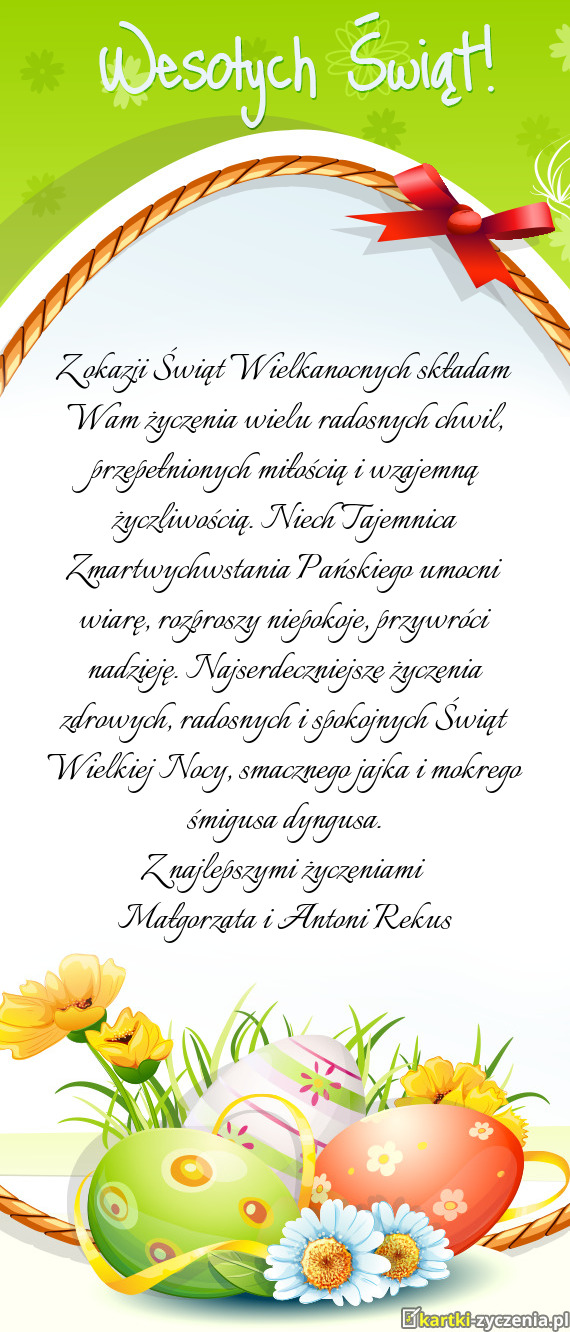 Wesołych Świąt!
Z okazji Świąt Wielkanocnych składam
Wam życzenia wielu radosnych chwil,
przepełnionych miłością i wzajemną
życzliwością. Niech Tajemnica
Zmartwychwstania Pańskiego umocni
wiarę, rozproszy niepokoje, przywróci
nadzieję. Najserdeczniejsze życzenia
zdrowych, radosnych i spokojnych Świąt
Wielkiej Nocy, smacznego jajka i mokrego
śmigusa dyngusa.
Z najlepszymi życzeniami
Małgorzata i Antoni Rekus
kartki-zyczenia.pl